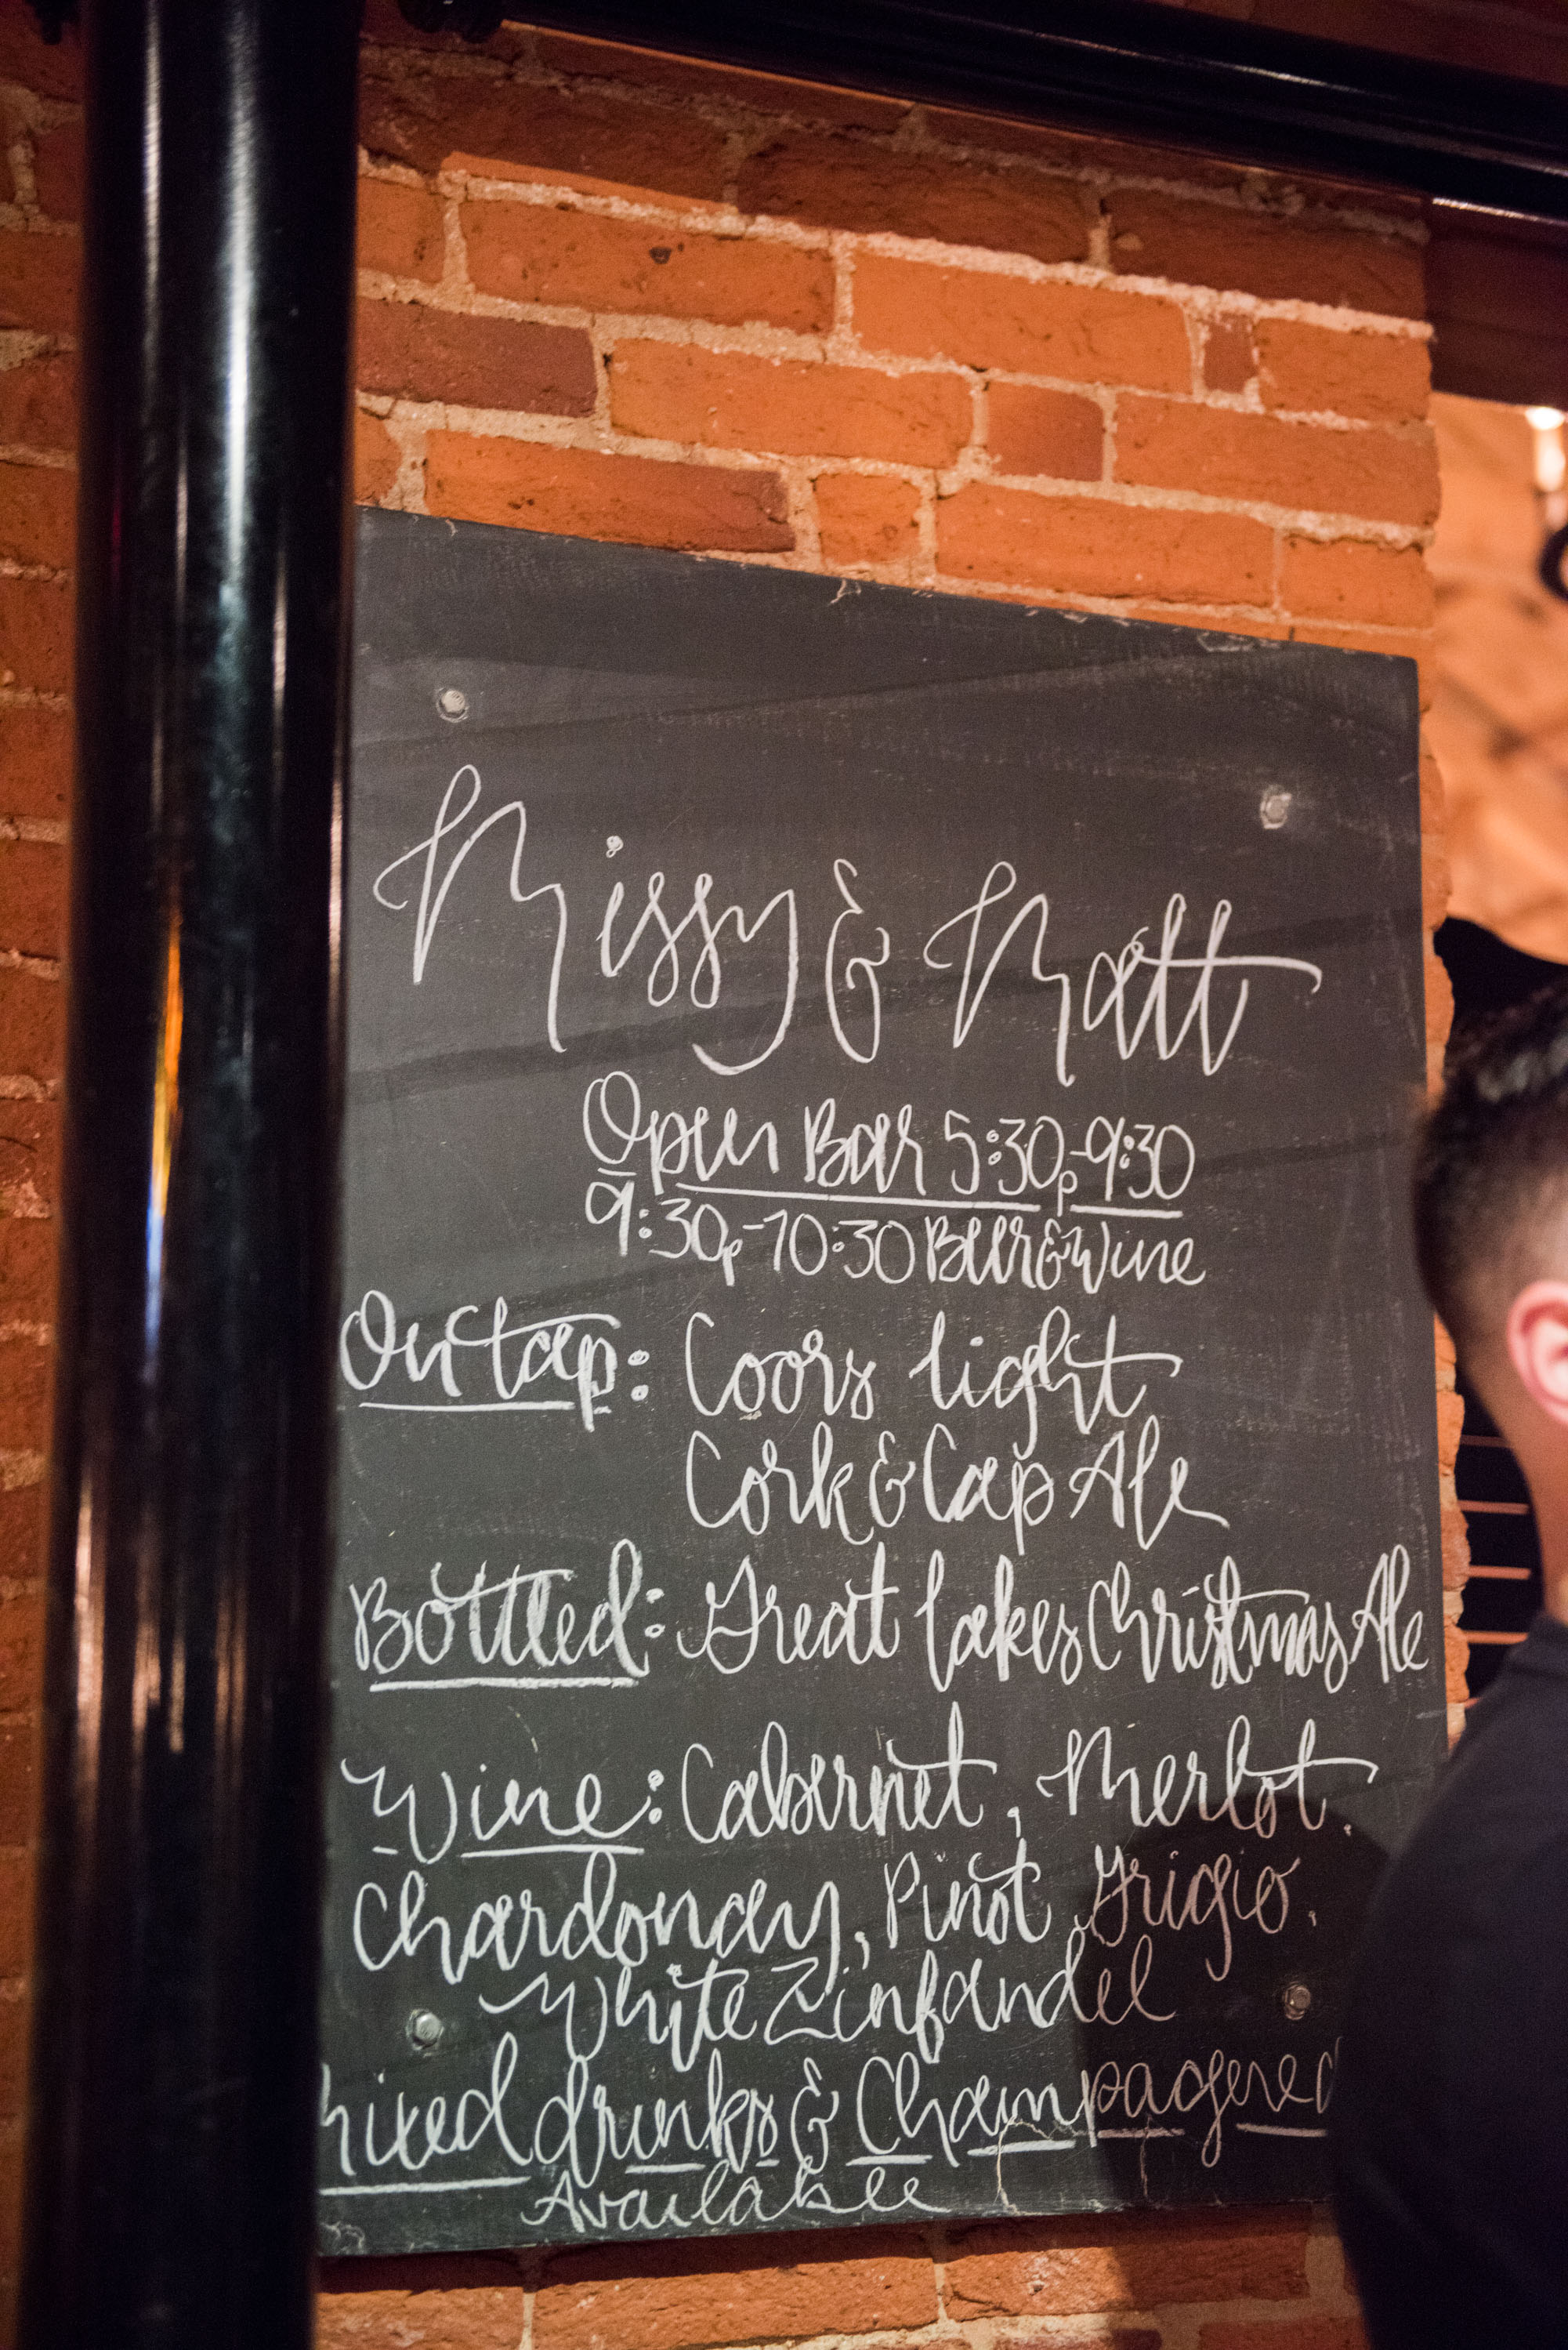 Missy & Matt
Open Bar 5:30p-9:30
9:30p-10:30 Beer & Wine
On tap: Coors light
Cork & Cap Ale
Bottled: Great lakes Christmas Ale
Wine: Cabernet, Merlot,
Chardonay, Pinot Grigio,
White Zinfandel
Mixed drinks & Champagne
Available